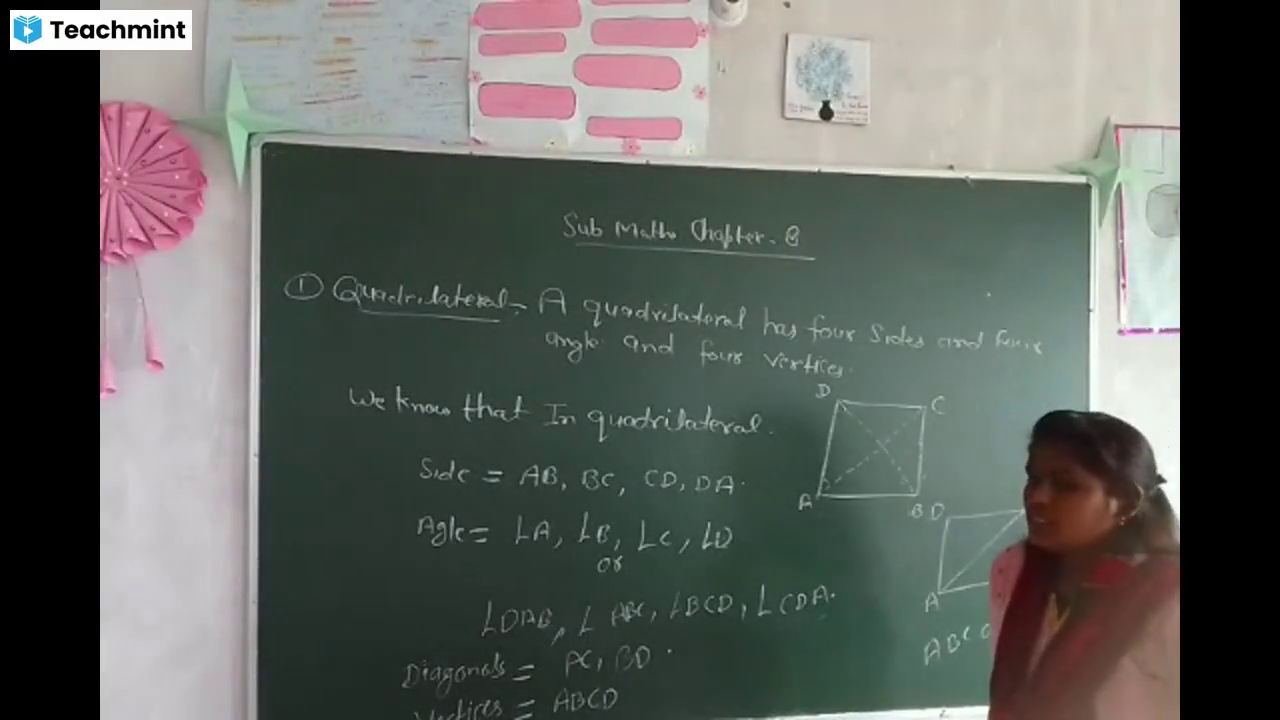 Teachmint
Sub Maths Chapter - 8
① Quadrilateral - A quadrilateral has four sides and four
angle and four vertices.
We know that In quadrilateral.
Side = AB, BC, CD, DA.
Agle = ∠A, ∠B, ∠C, ∠D
or
∠DAB, ∠ABC, ∠BCD, ∠CDA.
Diagonals = AC, BD.
Vertices = ABCD
D C
A B
D
A
ABC